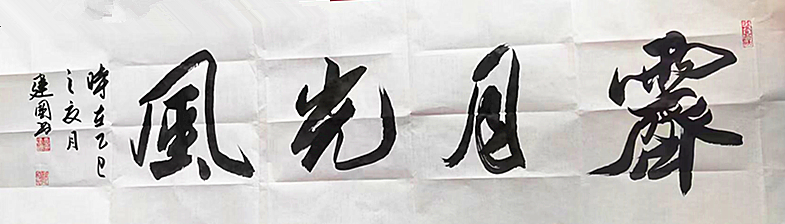 霽月光風
時在乙巳
之亥月
建國書